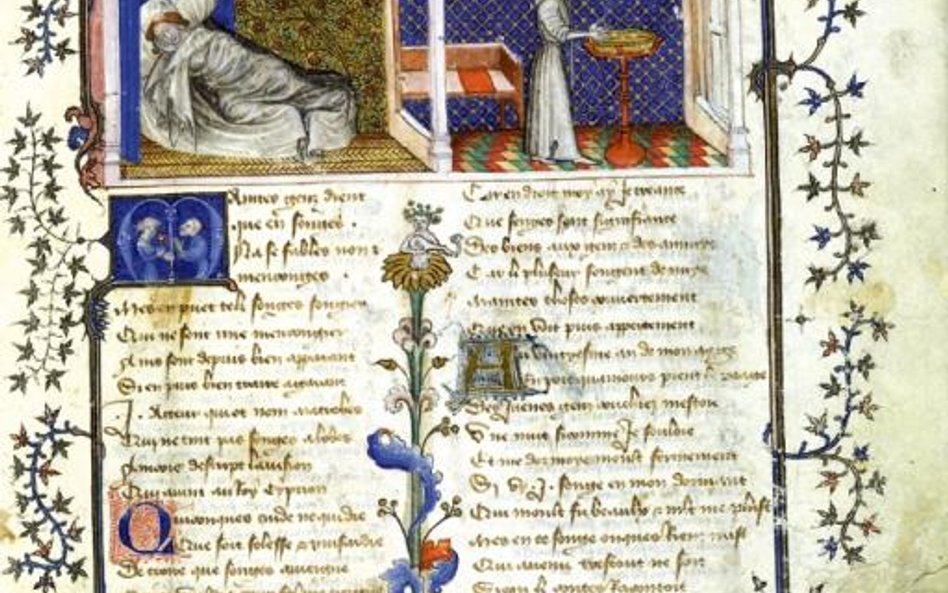 Maintes genz dient
que en songes
Na se fables non z
menconges .
Mes en puet telz songes songier
Qui ne sont mie mencongier
Ains sont depuis bien apparant
Si en puis bien traire a garant
.I. Acteur qui ot nom macrobes
Qui ne tint pas songes a lobes
Aincois descript lavision
Qui avint au roy Cypion
Quiconques cuide ne qui die
Que soit folesse & musardie
De croire que songes aviegne
Car endroit moy ay je creance
Que songes sont signifiance
Des biens aux gens & des anuys
Car li plusieur songent de nuys
Maintes choses couvertement
Que en voit puis appertement
Au vintiesme an de mon aage
En point quamours prent le paage
Des jeunes gens couchiez mestoie
Une nuit si comme je souloie
Et me dormoye moult forment
Si vy .I. songe en mon dormant
Qui moult fu beaulx & mlt me plust
Mes en ce songe onques riens nust
Qui avenu trestout ne soit
Si com li songes racontoit